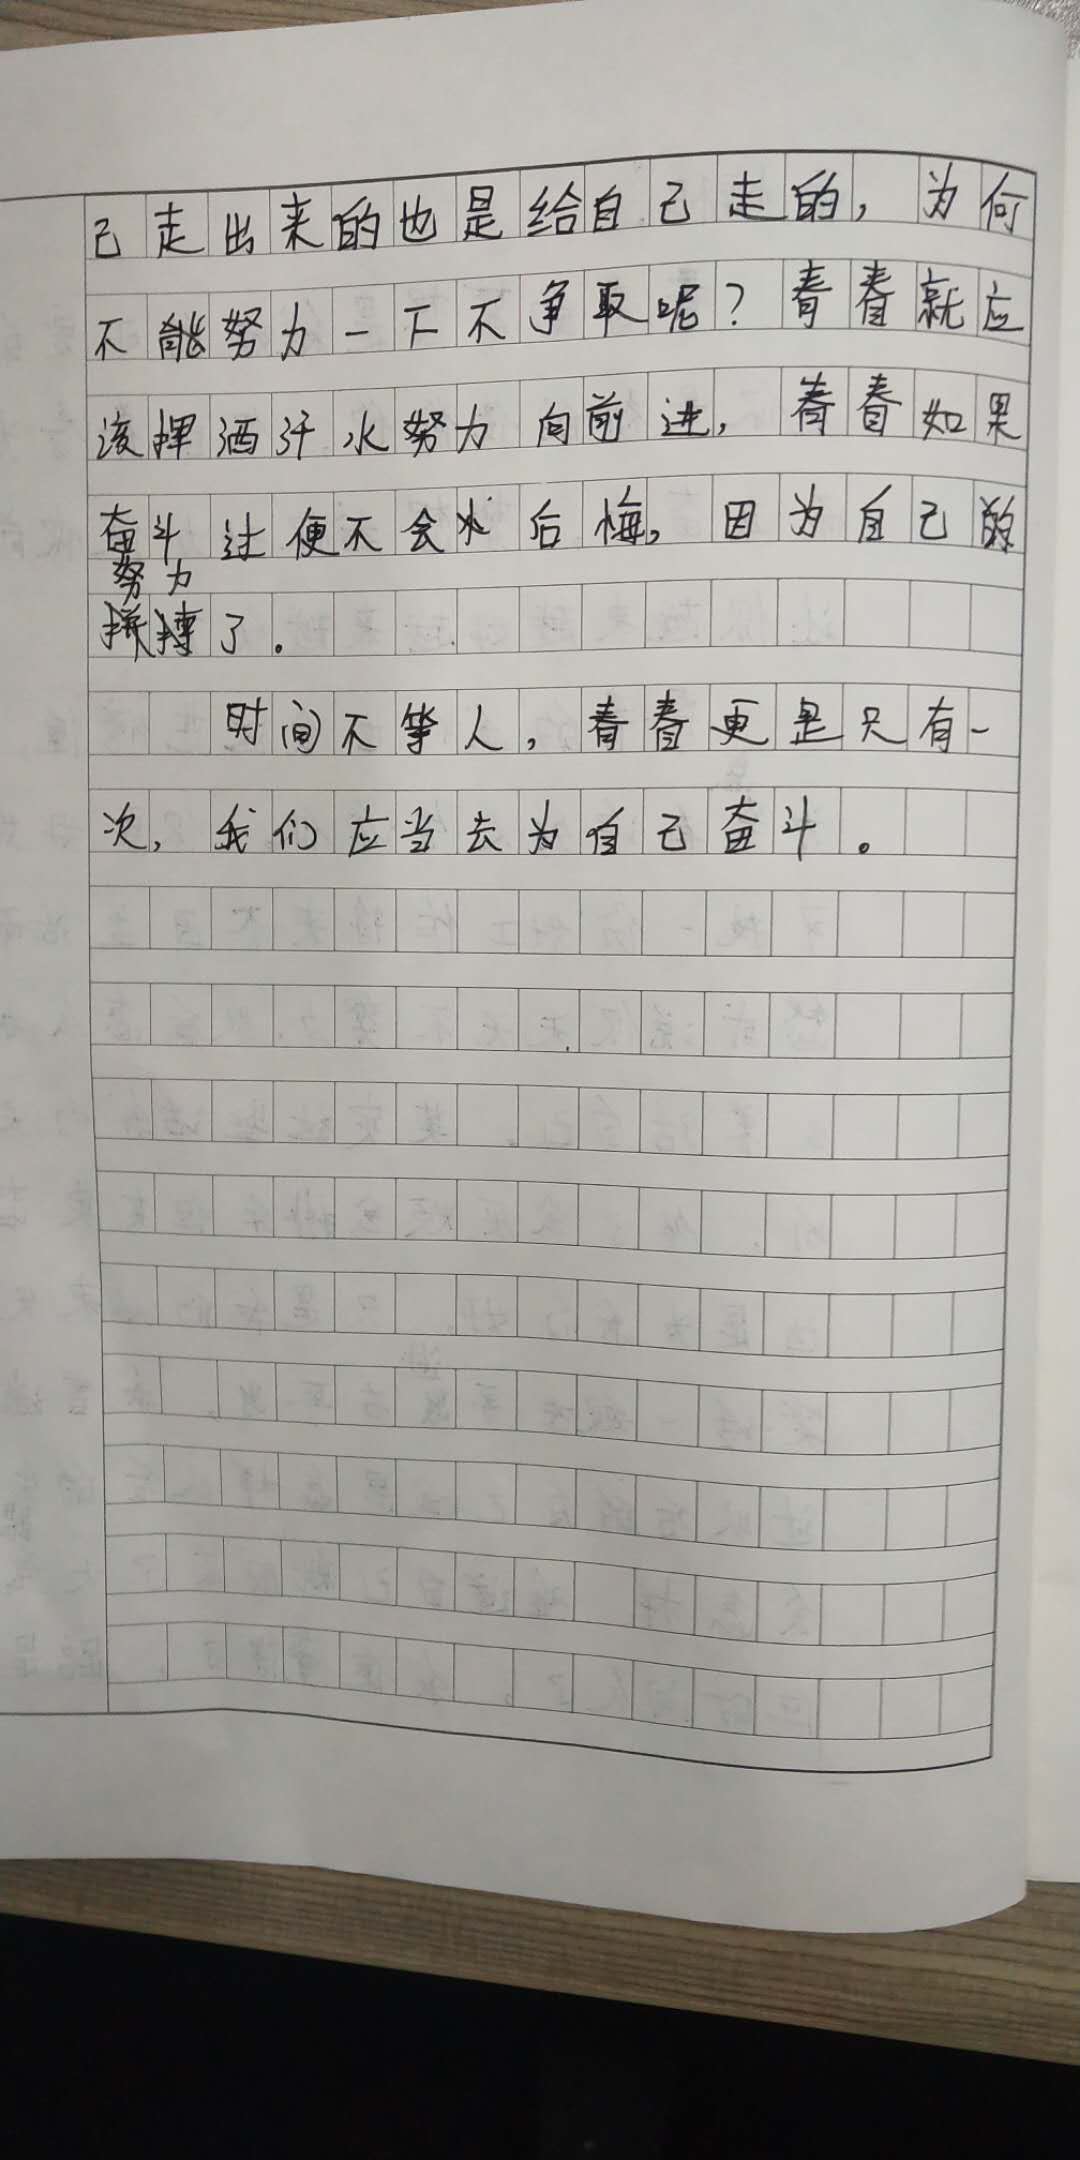 己走出来的也是给自己走的，为何
不能努力一下不争取呢？青春就应
该挥洒汗水努力向前进，青春如果
奋斗过便不会水后悔，因为自己的
努力
拼搏了。
时间不等人，青春更是只有一
次，我们应当去为自己奋斗。